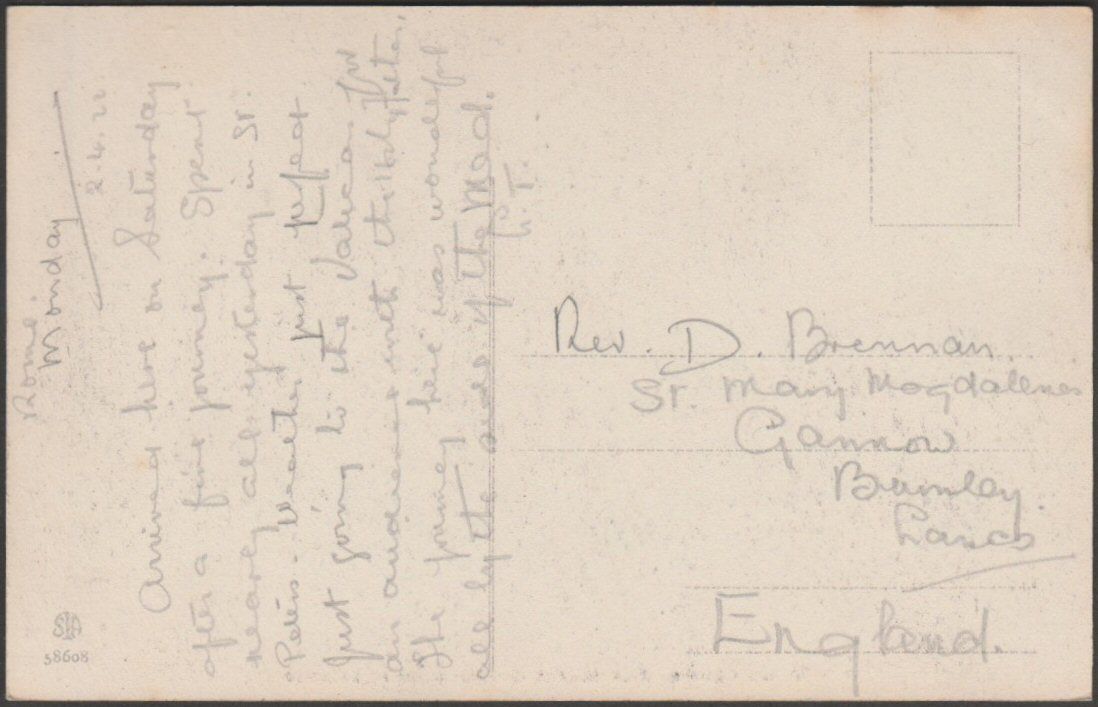 Rome
Monday
2.4.22
Arrived here on Saturday
after a fine journey. Spent
nearly all yesterday in St.
Peters. Weather just perfect
Just going to the Vatican for
an audience with the Holy Father,
The journey here was wonderful
all by the side of the Med.
P.T.
Rev. D. Brennan.
St. Mary Magdalenes
Gannow
Burnley.
Lancs
England.
SIA
58608